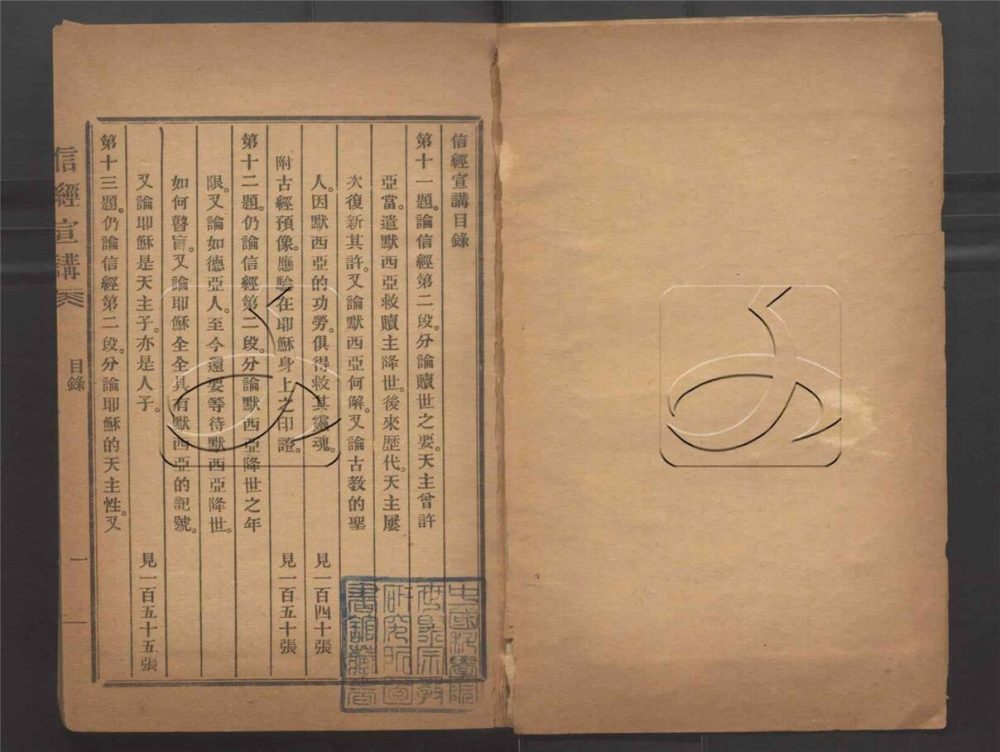 信經宣講目錄
第十一題。論信經第二段。分論贖世之要。天主曾許
亞當。遣默西亞救贖主降世。後來歷代。天主屢
次復新其許。又論默西亞何解。又論古教的聖
人。因默西亞的功勞。俱得救其靈魂。 見一百四十張
附古經預像。應驗在耶穌身上之印證。 見一百五十張
第十二題。仍論信經第二段。分論默西亞降世之年
限。又論如德亞人。至今還要等待默西亞降世。
如何瞽盲。又論耶穌全全具有默西亞的記號。
又論耶穌是天主子。亦是人子。 見一百五十五張
第十三題。仍論信經第二段。分論耶穌的天主性。又
信經宣講 目錄 一
中國科學院
世界宗教
研究所圖
書館藏書